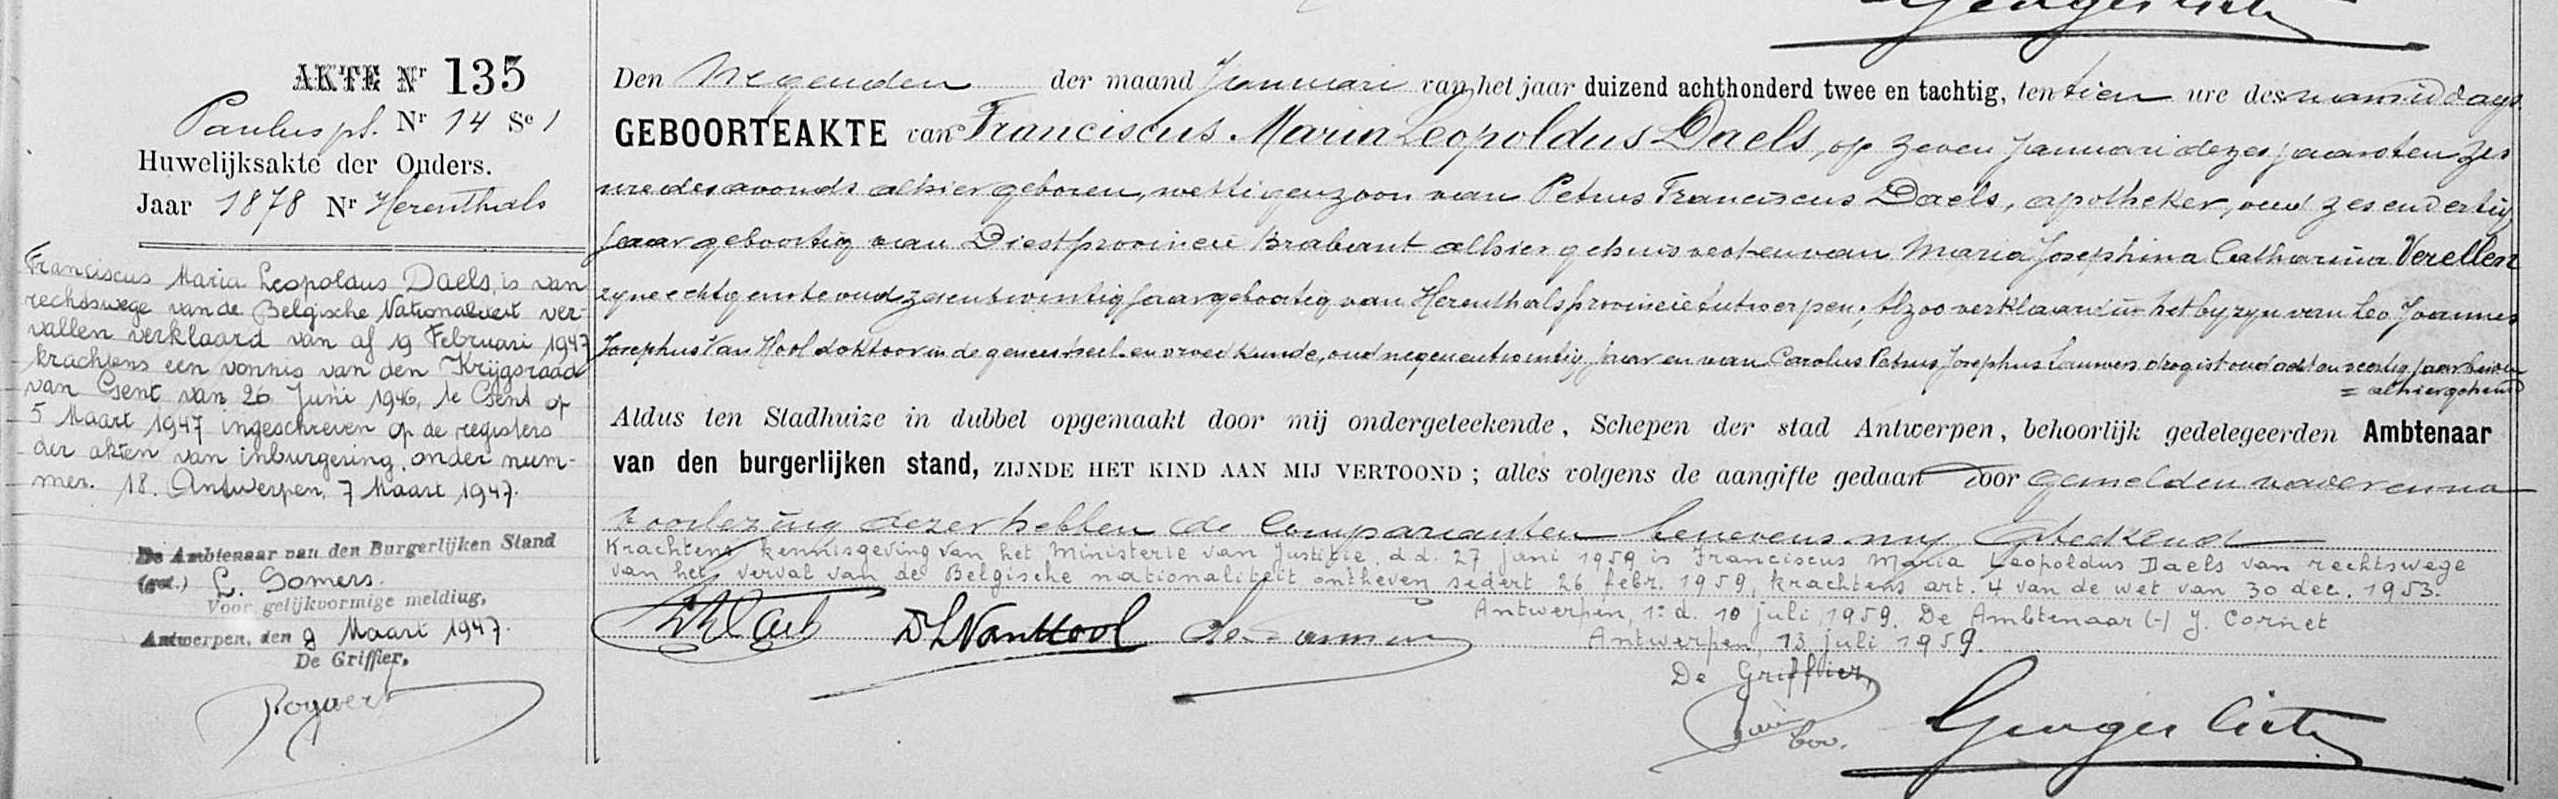 AKTE Nr 135
Pauluspl. Nr 14 Se 1
Huwelijksakte der Ouders.
Jaar 1878 Nr Herenthals
Franciscus Maria Leopoldus Daels, is van
rechtswege van de Belgische Nationaliteit ver-
vallen verklaard van af 19 Februari 1947
krachtens een vonnis van den Krijgsraad
van Gent van 26 Juni 1946, te Gent op
5 Maart 1947 ingeschreven op de registers
der akten van inburgering, onder num-
mer. 18. Antwerpen, 7 Maart 1947.
De Ambtenaar van den Burgerlijken Stand
(get.) L. Somers.
Voor gelijkvormige melding,
Antwerpen, den 8 Maart 1947.
De Griffier,
Den Negenden der maand Januari van het jaar duizend achthonderd twee en tachtig, ten tien ure des namiddags
GEBOORTEAKTE van Franciscus Maria Leopoldus Daels, op zeven Januari dezes jaars ten zes
ure des avonds alhier geboren, wettigen zoon van Petrus Franciscus Daels, apotheker, oud zes en dertig
jaar geboortig van Diest provincie Brabant alhier gehuisvest en van Maria Josephina Catharina Verellen
zyne echtgenote oud zesentwintig jaar geboortig van Herenthals provincie Antwerpen; Alzoo verklaard in het byzyn van Leo Joannes
Josephus Van Hool doktoor in de genees heel- en vroedkunde, oud negenentwintig jaar en van Carolus Petrus Josephus Lauwers drogist oud acht en veertig jaar beiden
= alhier gehuisd
Aldus ten Stadhuize in dubbel opgemaakt door mij ondergeteekende, Schepen der stad Antwerpen, behoorlijk gedelegeerden Ambtenaar
van den burgerlijken stand, ZIJNDE HET KIND AAN MIJ VERTOOND; alles volgens de aangifte gedaan door gemelden vader en na
voorlezing dezer hebben de Comparanten benevens my geteekend
Krachtens kennisgeving van het Ministerie van Justitie d.d. 27 juni 1959 is Franciscus Maria Leopoldus Daels van rechtswege
van het verval van de Belgische nationaliteit ontheven sedert 26 febr. 1959, krachtens art. 4 van de wet van 30 dec. 1953.
Antwerpen, 1: d. 10 juli 1959. De Ambtenaar (-) J. Cornet
DLVanHool
Antwerpen, 13 juli 1959.
De Griffier,